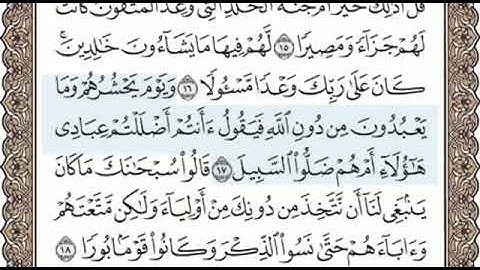 قُلْ أَذَٰلِكَ خَيْرٌ أَمْ جَنَّةُ ٱلْخُلْدِ ٱلَّتِى وُعِدَ ٱلْمُتَّقُونَ كَانَتْ
لَهُمْ جَزَآءً وَمَصِيرًا ١٥ لَّهُمْ فِيهَا مَا يَشَآءُونَ خَٰلِدِينَ
كَانَ عَلَىٰ رَبِّكَ وَعْدًا مَّسْـُٔولًا ١٦ وَيَوْمَ يَحْشُرُهُمْ وَمَا
يَعْبُدُونَ مِن دُونِ ٱللَّهِ فَيَقُولُ ءَأَنتُمْ أَضْلَلْتُمْ عِبَادِى
هَٰٓؤُلَآءِ أَمْ هُمْ ضَلُّوا۟ ٱلسَّبِيلَ ١٧ قَالُوا۟ سُبْحَٰنَكَ مَا كَانَ
يَنۢبَغِى لَنَآ أَن نَّتَّخِذَ مِن دُونِكَ مِنْ أَوْلِيَآءَ وَلَٰكِن مَّتَّعْتَهُمْ
وَءَابَآءَهُمْ حَتَّىٰ نَسُوا۟ ٱلذِّكْرَ وَكَانُوا۟ قَوْمًۢا بُورًا ١٨